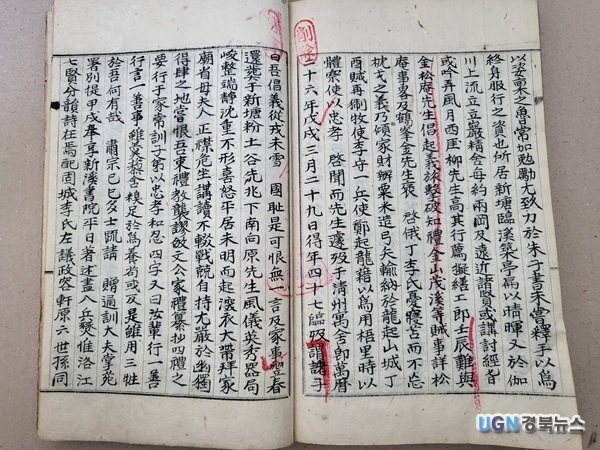 以姿稟之魯常加勉勵尤致力於朱子書未甞釋手以爲
終身服行之資也所居新塘臨溪築亭扁以晴暉又於伽
川上流立立巖精舍每約兩岡及遠近諸賢或講討經旨
或吟弄風月西厓柳先生高其行薦擬繕工郎壬辰難與
金松庵先生倡起義旅擊破知禮金山茂溪等賊事詳松
庵事畧及鶴峯金先生褒 啓俄丁李氏憂廬苦而不忘
枕戈之義乃傾家財鮮粟木造弓矢輸納於龍起山城丁
酉賊再刱牧使李守一兵使鄭起龍藉以爲用梧里時以
體察使以忠孝 啓聞而先生遽歿于淸州寓舍卽萬曆
二十六年戊戌三月二十九日得年四十七臨歿謂諸子
曰吾倡義從戎未雪 國恥是可恨無一言及家事翌春
還葬于新塘粉土谷先兆下南向原先生風儀英秀器局
峻整端靜沈重不形喜怒平居未明而起深衣大帶拜家
廟省母夫人正襟危坐講讀不輟戰兢自持尤嚴於幽獨
得肆之地嘗恨吾東禮敎襲謬倣文公家禮纂抄四禮之
要行于家常訓子弟以忠孝和忍四字又曰汝輩行一善
行言一善事雖
於吾何有哉 肅宗己巳多士䟽請 贈通訓大夫掌苑
署別提甲戌奉享新溪書院平日著述盡入兵燹惟洛江
七賢分韻詩在焉配固城李氏左議政容軒原六世孫同
刪
UGN경북뉴스